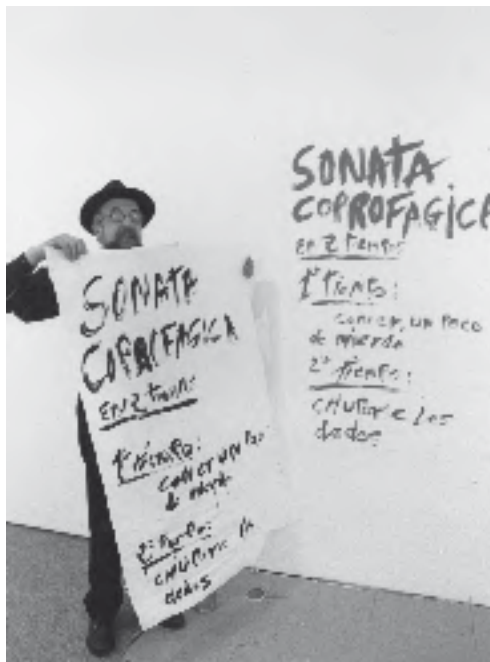 SONATA
COPROFAGICA
EN 2 TIEMPOS
1er TIEMPO:
COMER UN POCO
de mierda
2º TIEMPO:
CHUPARSE LOS
dedos
SONATA
COPROFAGICA
EN 2 TIEMPOS
1º TIEMPO:
COMER, UN POCO
de mierda
2º TIEMPO:
CHUPARSE LOS
dedos